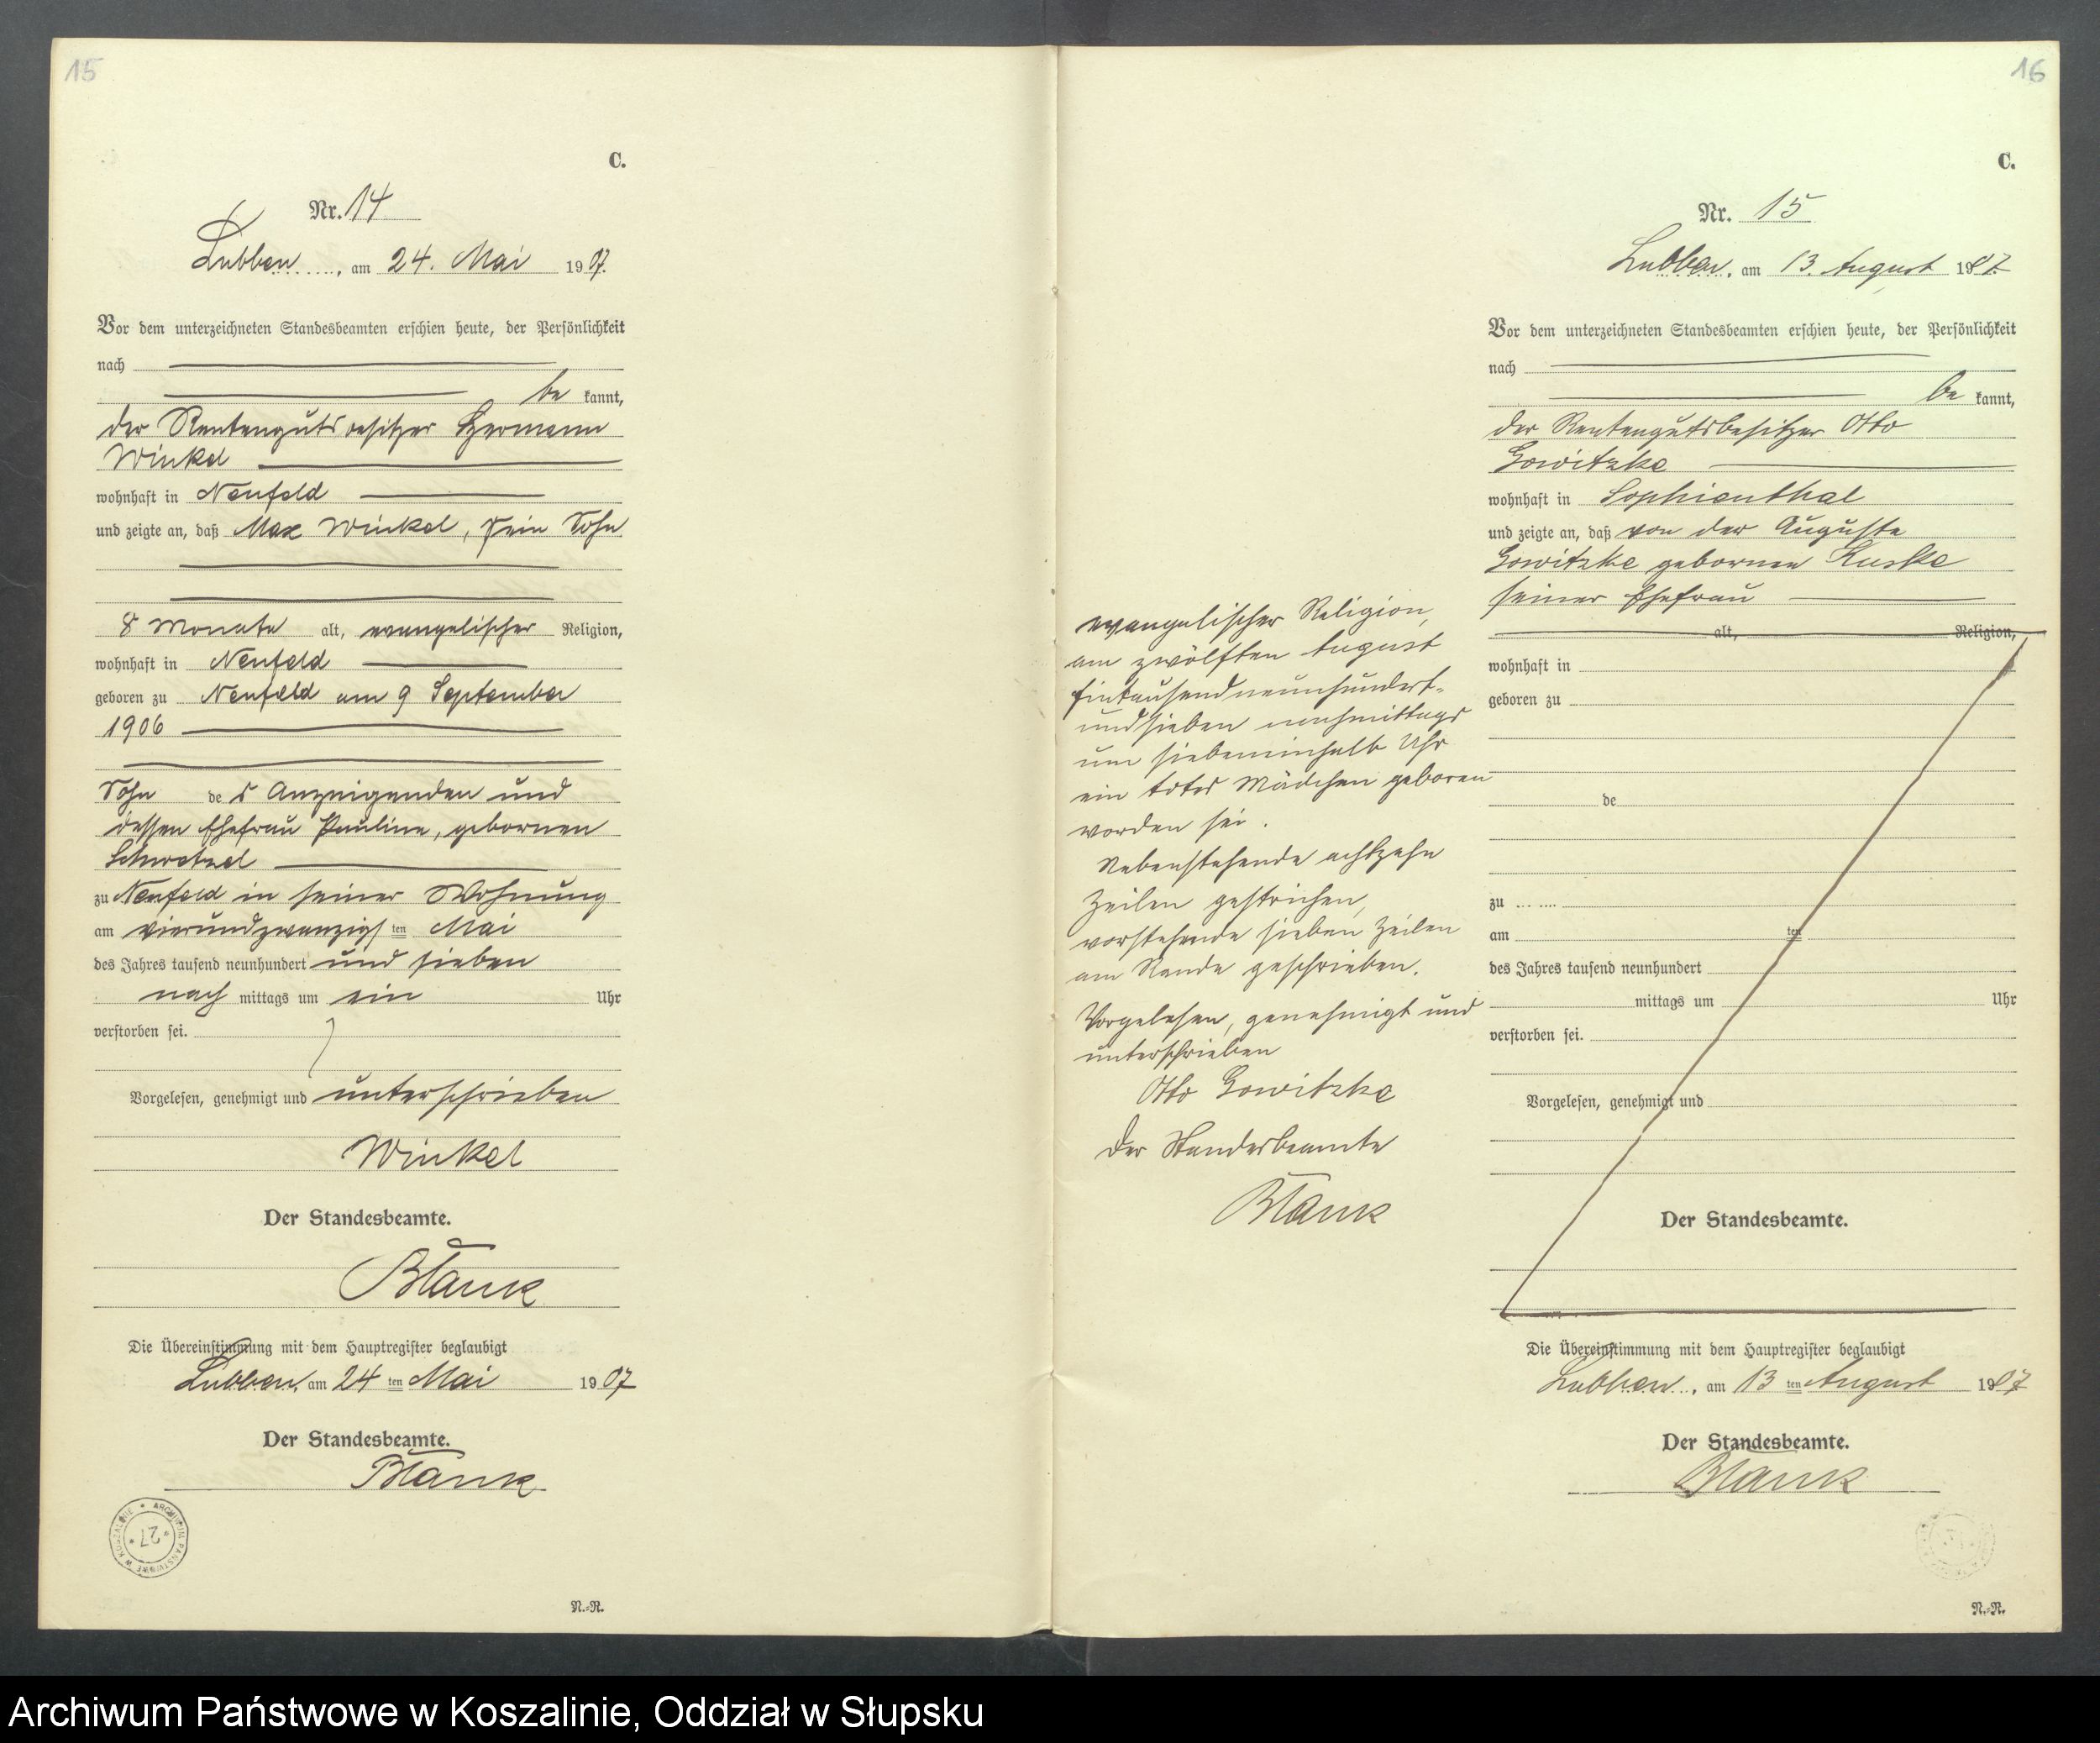 15
C.
Nr. 14
Lubben, am 24. Mai 1907.
Vor dem unterzeichneten Standesbeamten erschien heute, der Persönlichkeit
nach
be kannt,
der Rentengutsbesitzer Hermann
Winkel
wohnhaft in Neufeld
und zeigte an, daß Max Winkel, sein Sohn
8 Monate alt, evangelischer Religion,
wohnhaft in Neufeld
geboren zu Neufeld am 9 September
1906
Sohn des Anzeigenden und
dessen Ehefrau Pauline, gebornen
zu Neufeld in seiner Wohnung
am vierundzwanzigsten Mai
des Jahres tausend neunhundert und sieben
nach mittags um ein Uhr
verstorben sei.
Vorgelesen, genehmigt und unterschrieben
Winkel
Der Standesbeamte.
Blank
Die Übereinstimmung mit dem Hauptregister beglaubigt
Lubben, am 24 ten Mai 1907
Der Standesbeamte.
Blank
ARCHIWUM PAŃSTWOWE W KOSZALINIE
27
N.-R.
16
C.
Nr. 15
Lubben, am 13. August 1907.
Vor dem unterzeichneten Standesbeamten erschien heute, der Persönlichkeit
nach
be kannt,
der Rentengutsbesitzer Otto
Gowitzke
wohnhaft in Sophienthal
und zeigte an, daß von der Auguste
Gowitzke gebornen Kuske
seiner Ehefrau
alt, Religion,
wohnhaft in
geboren zu
de
zu
am ten
des Jahres tausend neunhundert
mittags um Uhr
verstorben sei.
Vorgelesen, genehmigt und
Der Standesbeamte.
evangelischer Religion,
am zwölften August
Eintausendneunhundert-
undsieben nachmittags
um siebeneinhalb Uhr
ein totes Mädchen geboren
worden sei.
Nebenstehende achtzehn
Zeilen gestrichen,
vorstehende sieben Zeilen
am Rande geschrieben.
Vorgelesen, genehmigt und
unterschrieben
Otto Gowitzke
Der Standesbeamte
Blank
Die Übereinstimmung mit dem Hauptregister beglaubigt
Lubben, am 13 ten August 1907
Der Standesbeamte.
Blank
N.-R.
Archiwum Państwowe w Koszalinie, Oddział w Słupsku